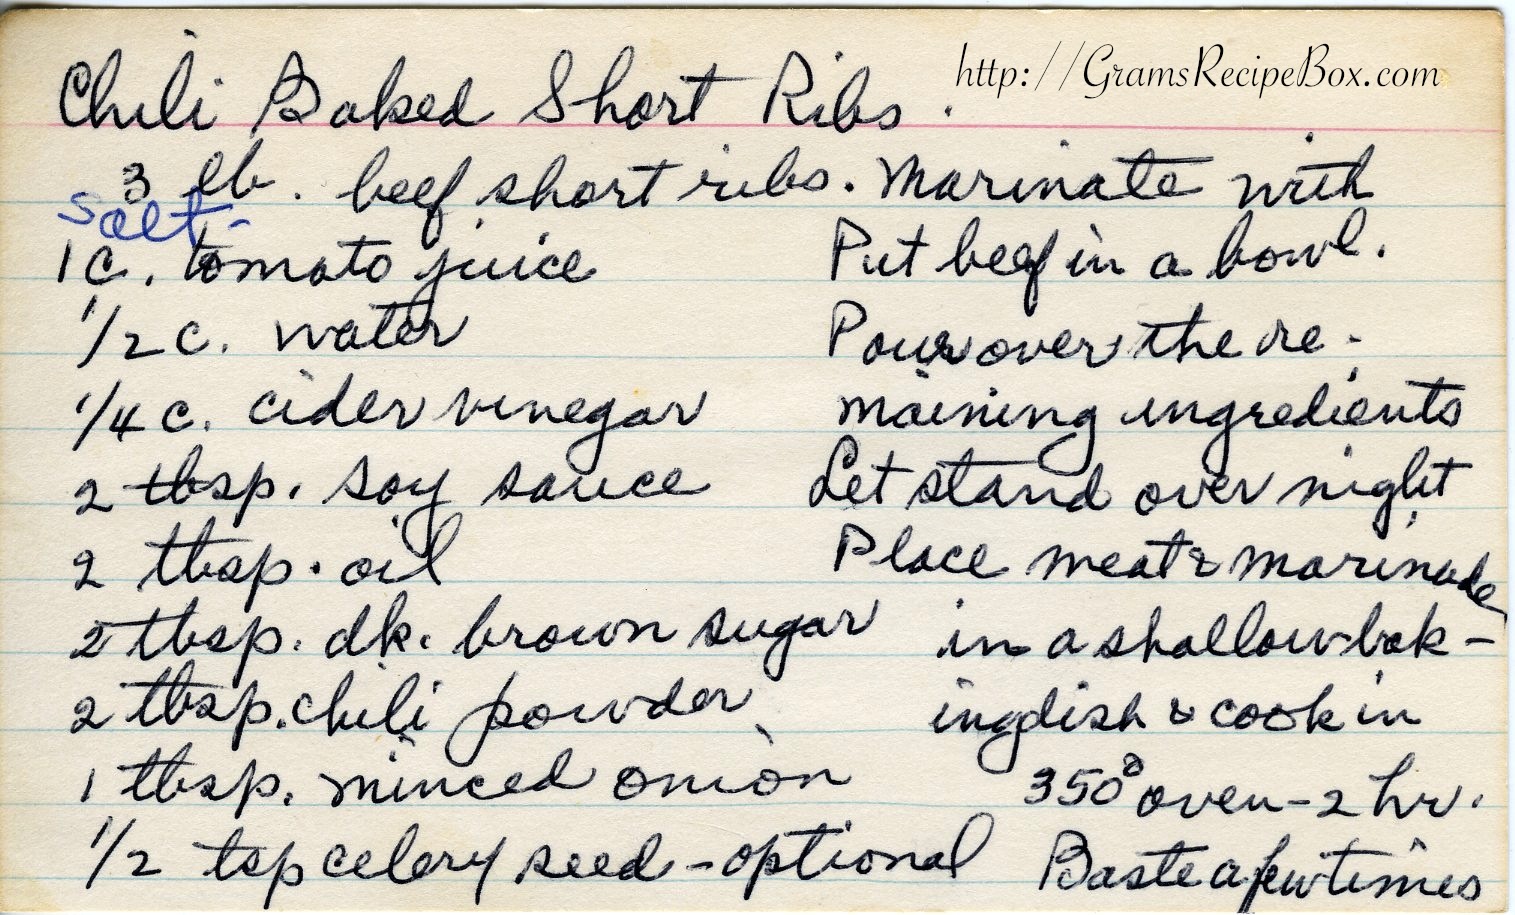 http://GramsRecipeBox.com
Chili Baked Short Ribs.
3 lb. beef short ribs. Marinate with
salt-
1 c. tomato juice
1/2 c. water
1/4 c. cider vinegar
2 tbsp. soy sauce
2 tbsp. oil
2 tbsp. dk. brown sugar
2 tbsp. chili powder
1 tbsp. minced onion
1/2 tsp celery seed - optional
Put beef in a bowl.
Pour over the re-
maining ingredients
Let stand over night
Place meat & marinade
in a shallow bak-
ing dish & cook in
350° oven - 2 hr.
Baste a few times